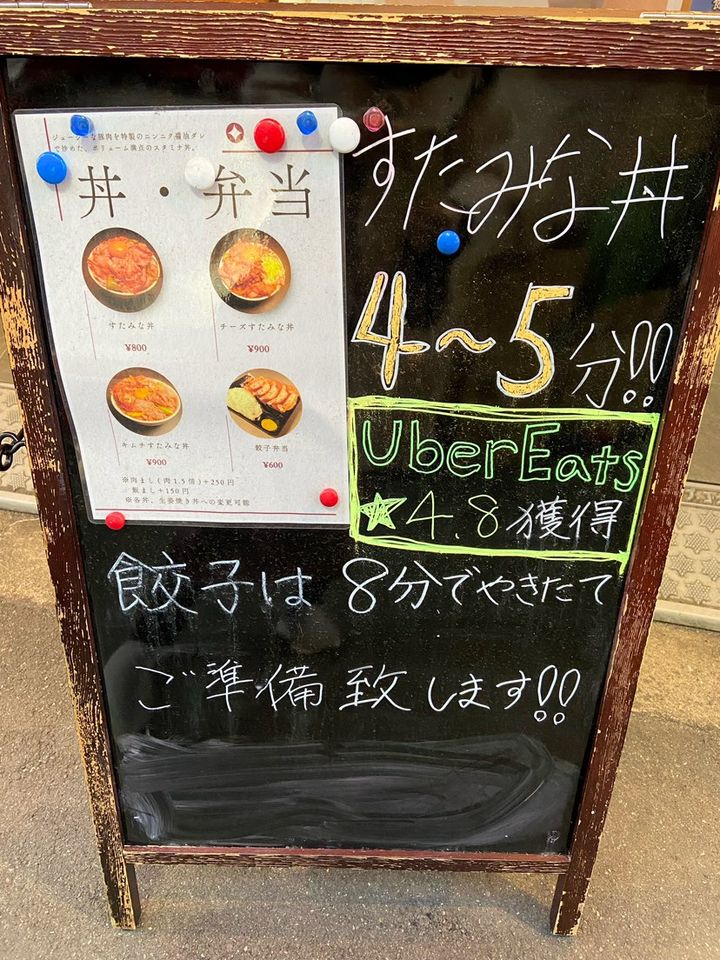 ジューシーな豚肉を特製のニンニク醤油ダレ
で炒めた、ボリューム満点のスタミナ丼。
丼・弁当
すたみな丼
¥800
チーズすたみな丼
¥900
キムチすたみな丼
¥900
餃子弁当
¥600
※肉まし(肉1.5倍)+250円
飯まし+150円
※各丼、生姜焼き丼への変更可能
すたみな丼
4~5分!!
UberEats
★4.8獲得
餃子は8分でやきたて
ご準備致します!!